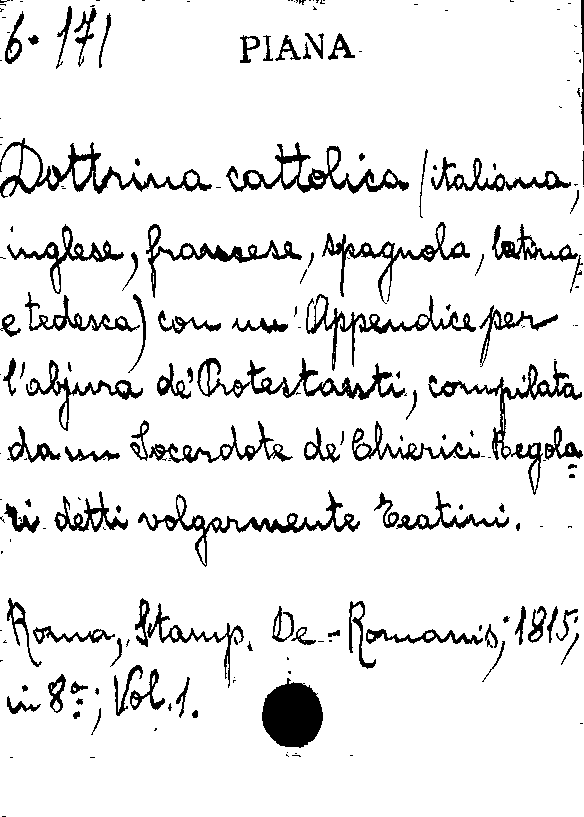 6. 171
PIANA
Dottrina cattolica (italiana,
inglese, francese, spagnola, latina,
e tedesca) con un' Appendice per
l'abjura de' Protestanti, compilata
da un Sacerdote de' Chierici Regola=
ri detti volgarmente Teatini.
Roma, Stamp. De-Romanis; 1815;
in 8º; Vol. 1.